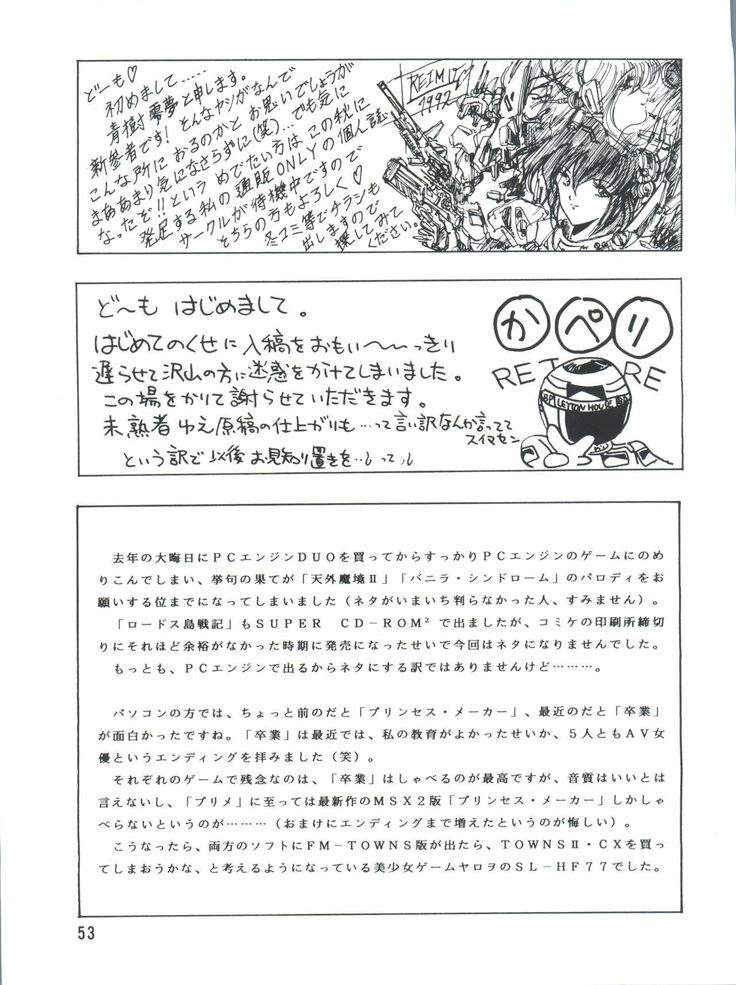 どーも♡
初めまして……
青樹零夢と申します。
新参者です！そんなヤシがなんで
こんな所におるのかとお思いでしょうが
まああまり気になさらずに(笑)…でも気に
なったぞ!!というめでたい方はこの秋に
発足する私の通販ONLYの個人誌
サークルが待機中ですので
そちらの方もよろしく♡
冬コミ等でチラシも
出しますので
探してみて
ください。
REIMU
1992
ど〜も はじめまして。
はじめてのくせに入稿をおもい〜〜っきり
遅らせて沢山の方に迷惑をかけてしまいました。
この場をかりて謝らせていただきます。
未熟者ゆえ原稿の仕上がりも…って言い訳なんか言ってて
スイマセン
という訳で以後お見知り置きを…
かぺり
RETIRE
BP LEYTON HOUSE BP
去年の大晦日にＰＣエンジンＤＵＯを買ってからすっかりＰＣエンジンのゲームにのめ
りこんでしまい、挙句の果てが「天外魔境Ⅱ」「バニラ・シンドローム」のパロディをお
願いする位までになってしまいました（ネタがいまいち判らなかった人、すみません）。
「ロードス島戦記」もＳＵＰＥＲ　ＣＤ－ＲＯＭ²で出ましたが、コミケの印刷所締切
りにそれほど余裕がなかった時期に発売になったせいで今回はネタになりませんでした。
もっとも、ＰＣエンジンで出るからネタにする訳ではありませんけど………。
パソコンの方では、ちょっと前のだと「プリンセス・メーカー」、最近のだと「卒業」
が面白かったですね。「卒業」は最近では、私の教育がよかったせいか、５人ともＡＶ女
優というエンディングを拝みました（笑）。
それぞれのゲームで残念なのは、「卒業」はしゃべるのが最高ですが、音質はいいとは
言えないし、「プリメ」に至っては最新作のＭＳＸ２版「プリンセス・メーカー」しかしゃ
べらないというのが………（おまけにエンディングまで増えたというのが悔しい）。
こうなったら、両方のソフトにＦＭ－ＴＯＷＮＳ版が出たら、ＴＯＷＮＳⅡ・ＣＸを買っ
てしまおうかな、と考えるようになっている美少女ゲームヤロヲのＳＬ－ＨＦ７７でした。
53